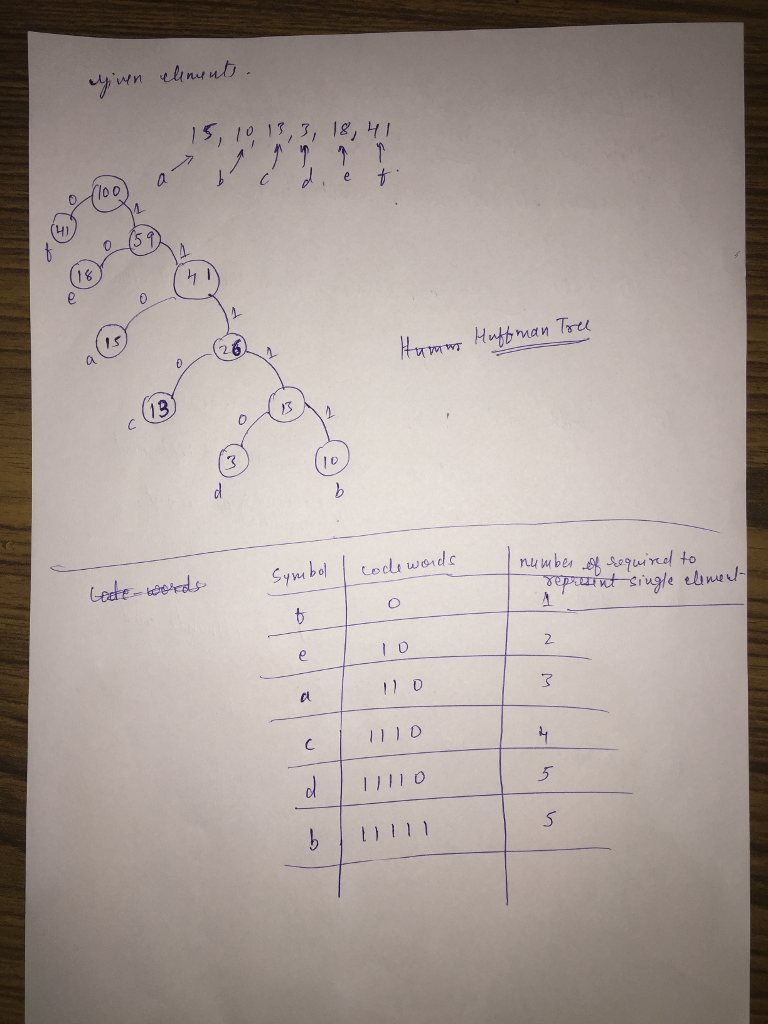 given elements.
15, 10, 13, 3, 18, 41
a b c d. e f.
0 100 1
41
f
0 59 1
18
e
0 41 1
15
a
0 26 1
13
c
0 13 1
3 10
d b
Huffman Tree
Symbol codewords number of required to
represent single element
f 0 1
e 10 2
a 110 3
c 1110 4
d 11110 5
b 11111 5